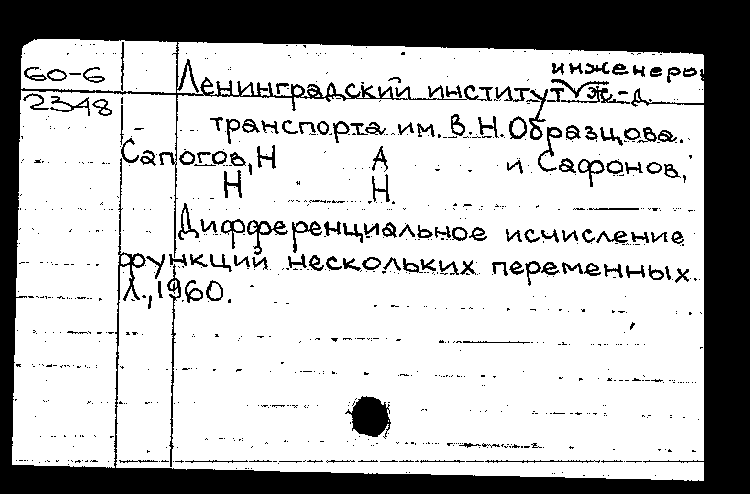 60-6
2348
инженеров
Ленинградский институт ж.-д.
транспорта им. В.Н.Образцова.
Сапогов, Н Н А Н и Сафонов,
Дифференциальное исчисление
функций нескольких переменных.
Л., 1960.